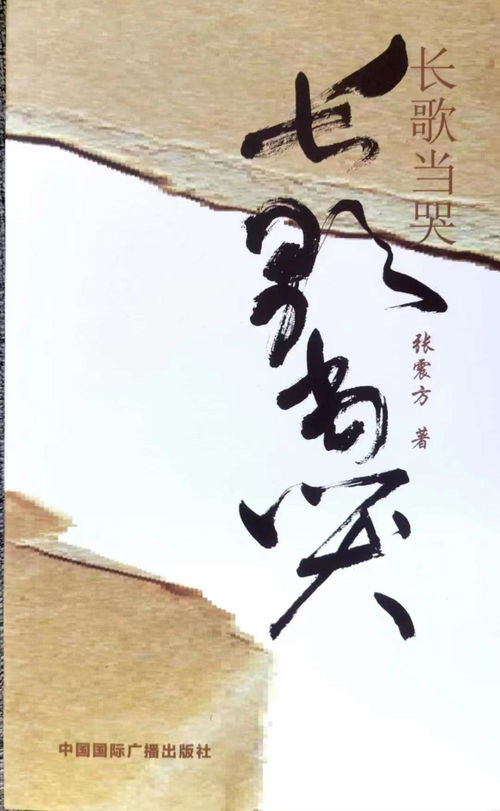 长歌当哭
长歌当哭
张震方 著
中国国际广播出版社